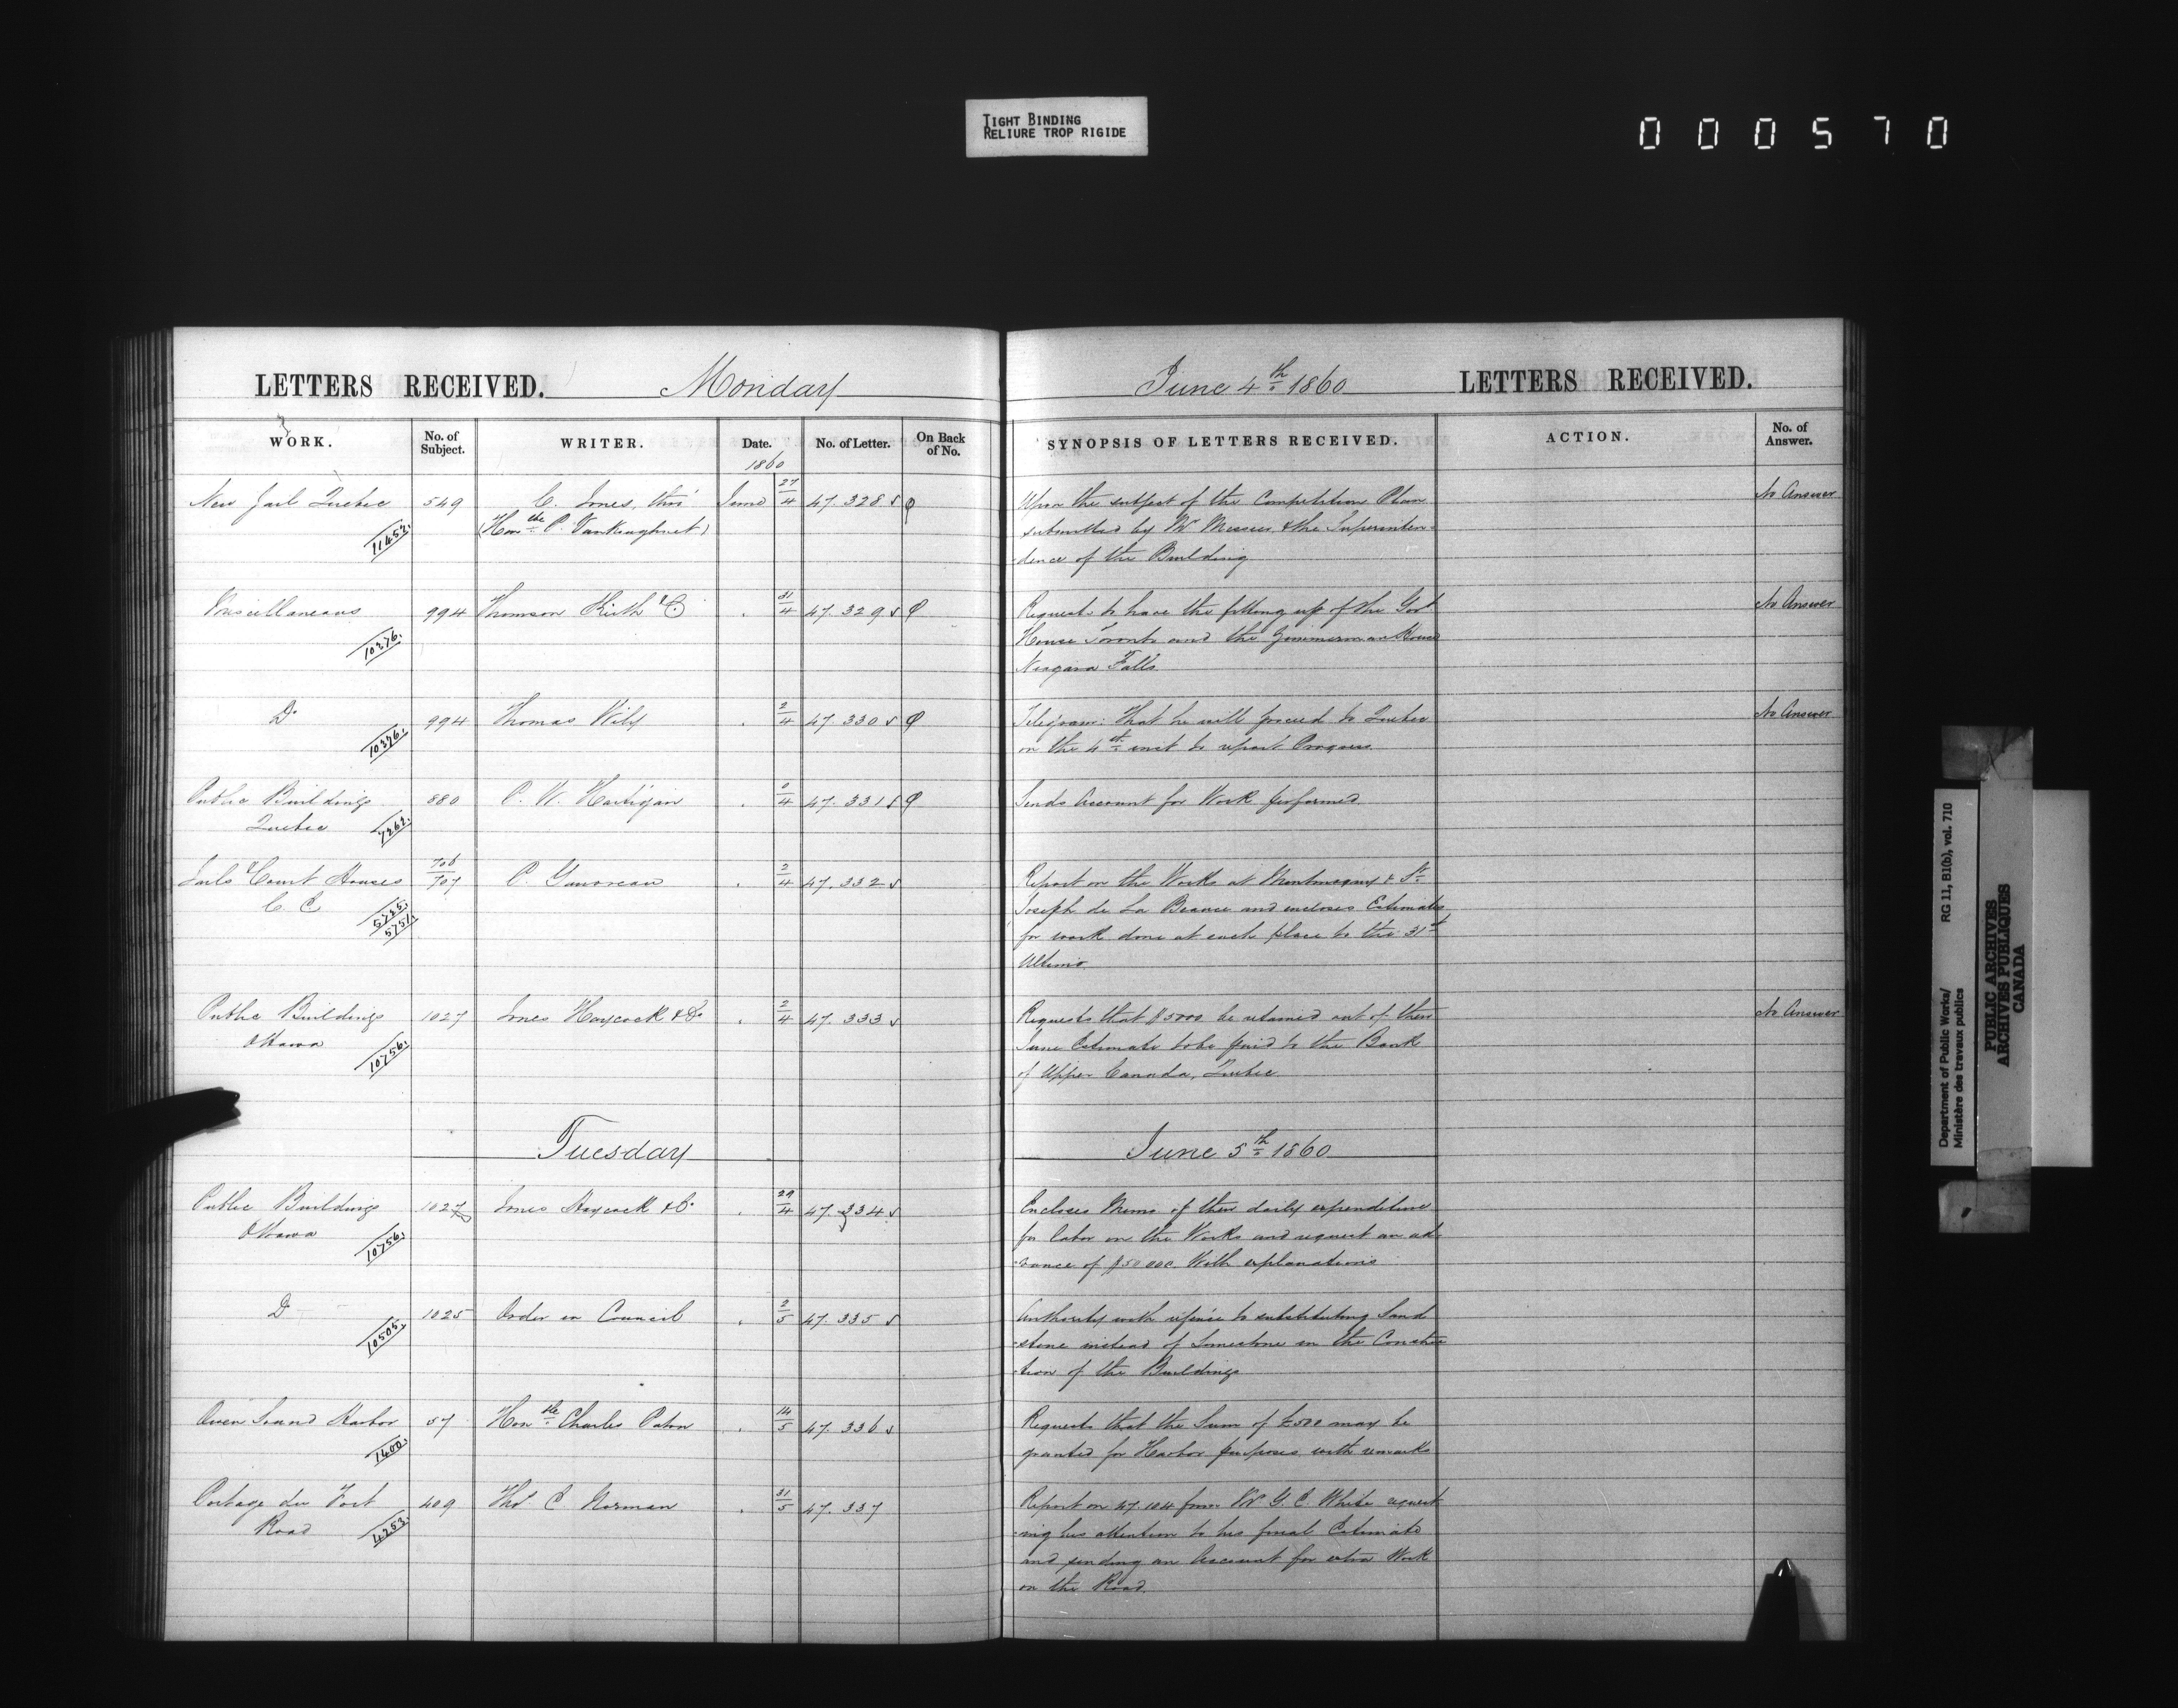 TIGHT BINDING
RELIURE TROP RIGIDE
000570
LETTERS RECEIVED. Monday
June 4th 1860 LETTERS RECEIVED.
WORK. No. of Subject. WRITER. Date. No. of Letter. On Back of No.
SYNOPSIS OF LETTERS RECEIVED. ACTION. No. of Answer.
1860
New Jail Quebec 549 C. Jones, thro' June 27/4 47.328
11452 (Honble P. Vankoughnet)
Upon the subject of the Competition Plan No Answer
submitted by Mr & the Superinten-
-dence of the Building
Miscellaneous 994 Thomson Keith & Co 31/4 47.329
10376.
Requests to have the fitting up of the Govt No Answer
House Toronto and the Zimmerman House
Niagara Falls
Do 994 Thomas Wily 2/4 47.330
10376.
Telegram: That he will proceed to Quebec No Answer
on the 4th inst to report Progress.
Public Buildings 880 P. W. Hartigan 47.331
Quebec 7262.
Sends Account for Work performed
Jails & Court Houses 706/707 P. Gauvreau 2/4 47.332
5725.
5751.
Report on the Works at Montmagny & St
Joseph de La Beauce and encloses Estimates
for work done at each place to the 31st
Ultimo
Public Buildings 1027 Jones Haycock & Co 2/4 47.333
Ottawa 10756.
Requests that $5000 be retained out of their No Answer
June Estimate to be paid to the Bank
of Upper Canada, Quebec
Tuesday June 5th 1860
Public Buildings 1027 Jones Haycock & Co 29/4 47.334
Ottawa 10756.
Encloses Memo of their daily expenditure
for labor on the Works and request an ad-
-vance of $50 000 With explanations
Do 1025 Order in Council 2/5 47.335
10505.
Authority with refince to substituting Sand
-stone instead of Limestone in the Construc
-tion of the Buildings
Owen Sound Harbor 57 Honble Charles Paton 14/5 47.336
1400.
Requests that the Sum of £500 may be
granted for Harbor purposes with remarks
Portage du Fort 409 Thos. C Norman 31/5 47.337
Road 4253.
Report on 47.104 from Mr G. C. White request
-ing his attention to his final Estimate
and sending an Account for extra Work
on the Road.
Department of Public Works/ RG 11, B1(b), vol. 710
Ministère des travaux publics
PUBLIC ARCHIVES
ARCHIVES PUBLIQUES
CANADA